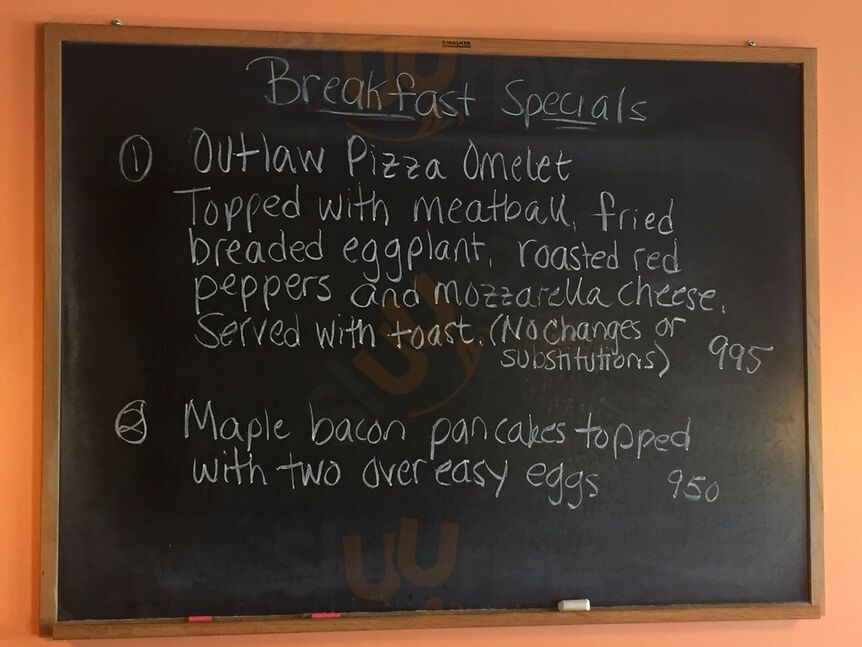 WALKER
Breakfast Specials
① Outlaw Pizza Omelet
Topped with meatball, fried
breaded eggplant, roasted red
peppers and mozzarella cheese.
Served with toast. (No changes or
substitutions) 995
② Maple bacon pancakes topped
with two over easy eggs 950